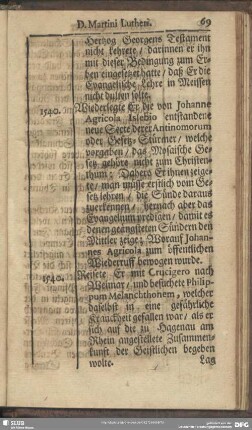 D. Martini Lutheri. 69
Hertzog Georgens Testament
nicht kehrete / darinnen er ihn
mit dieser Bedingung zum Er-
ben eingesetzet hatte / daß Er die
Evangelische Lehre in Meissen
nicht dulten solte.
1540. Wiederlegte Er die von Johanne
Agricola Islebio entstandene
neue Secte derer Antinomorum
oder Gesetz-Stürmer / welche
vorgeben / das Mosaische Ge-
setz gehöre nicht zum Christen-
thum; Dahero Er ihnen zeige-
te / man müsse erstlich vom Ge-
setz lehren / die Sünde daraus
zuerkennen / hernach aber das
Evangelium predigen / damit es
denen geängsteten Sündern den
Mittler zeige; Worauf Johan-
nes Agricola zum öffentlichen
Wiederruff bewogen wurde.
1540. Reisete Er mit Crucigero nach
Weimar / und besuchete Philip-
pum Melanchthonem, welcher
daselbst in eine gefährliche
Kranckheit gefallen war / als er
sich auf die zu Hagenau am
Rhein angestellete Zusammen-
kunst der Geistlichen begeben
wolte.
Lag
SLUB
DFG